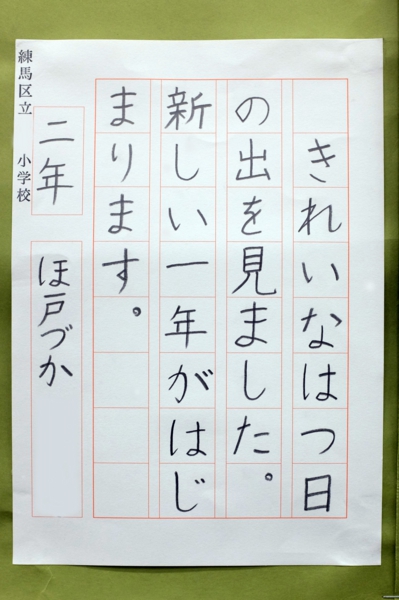 きれいなはつ日
の出を見ました。
新しい一年がはじ
まります。
二年
ほ戸づか
練馬区立 小学校